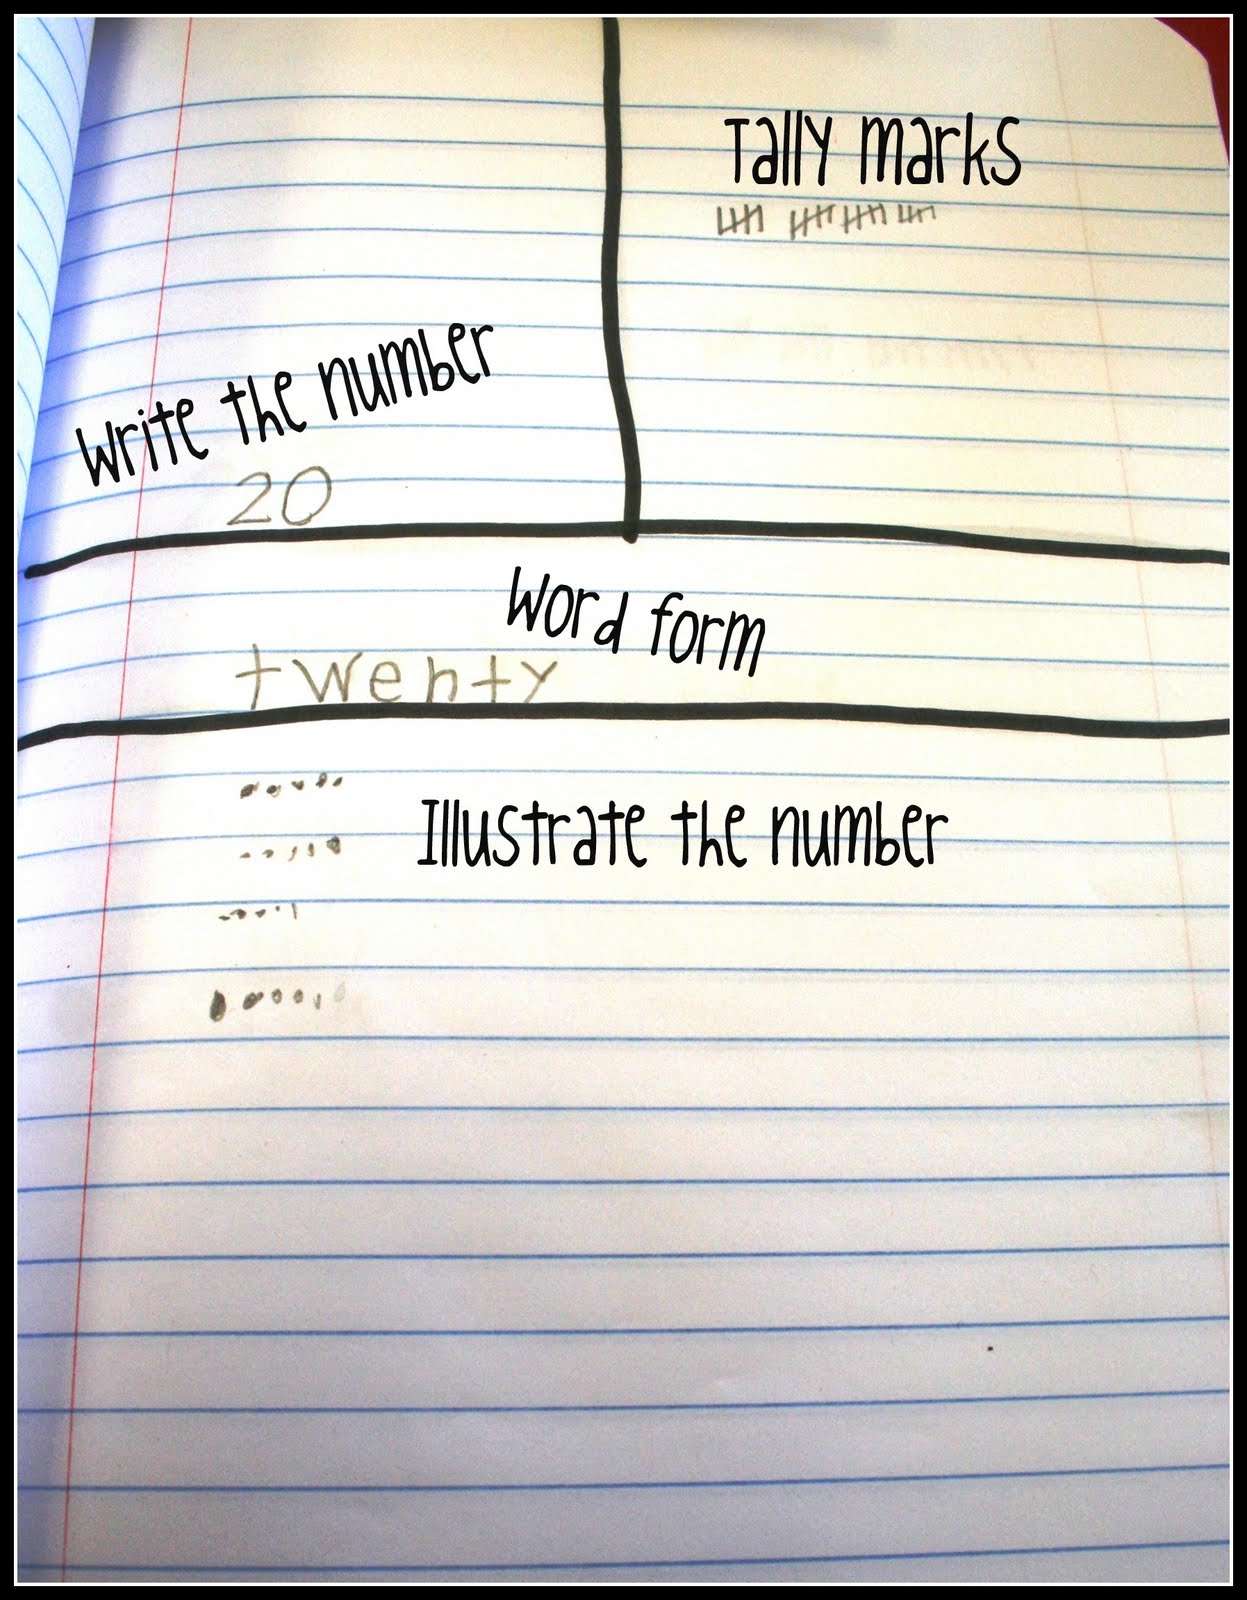 Tally marks
Write the number
20
Word form
twenty
Illustrate the number